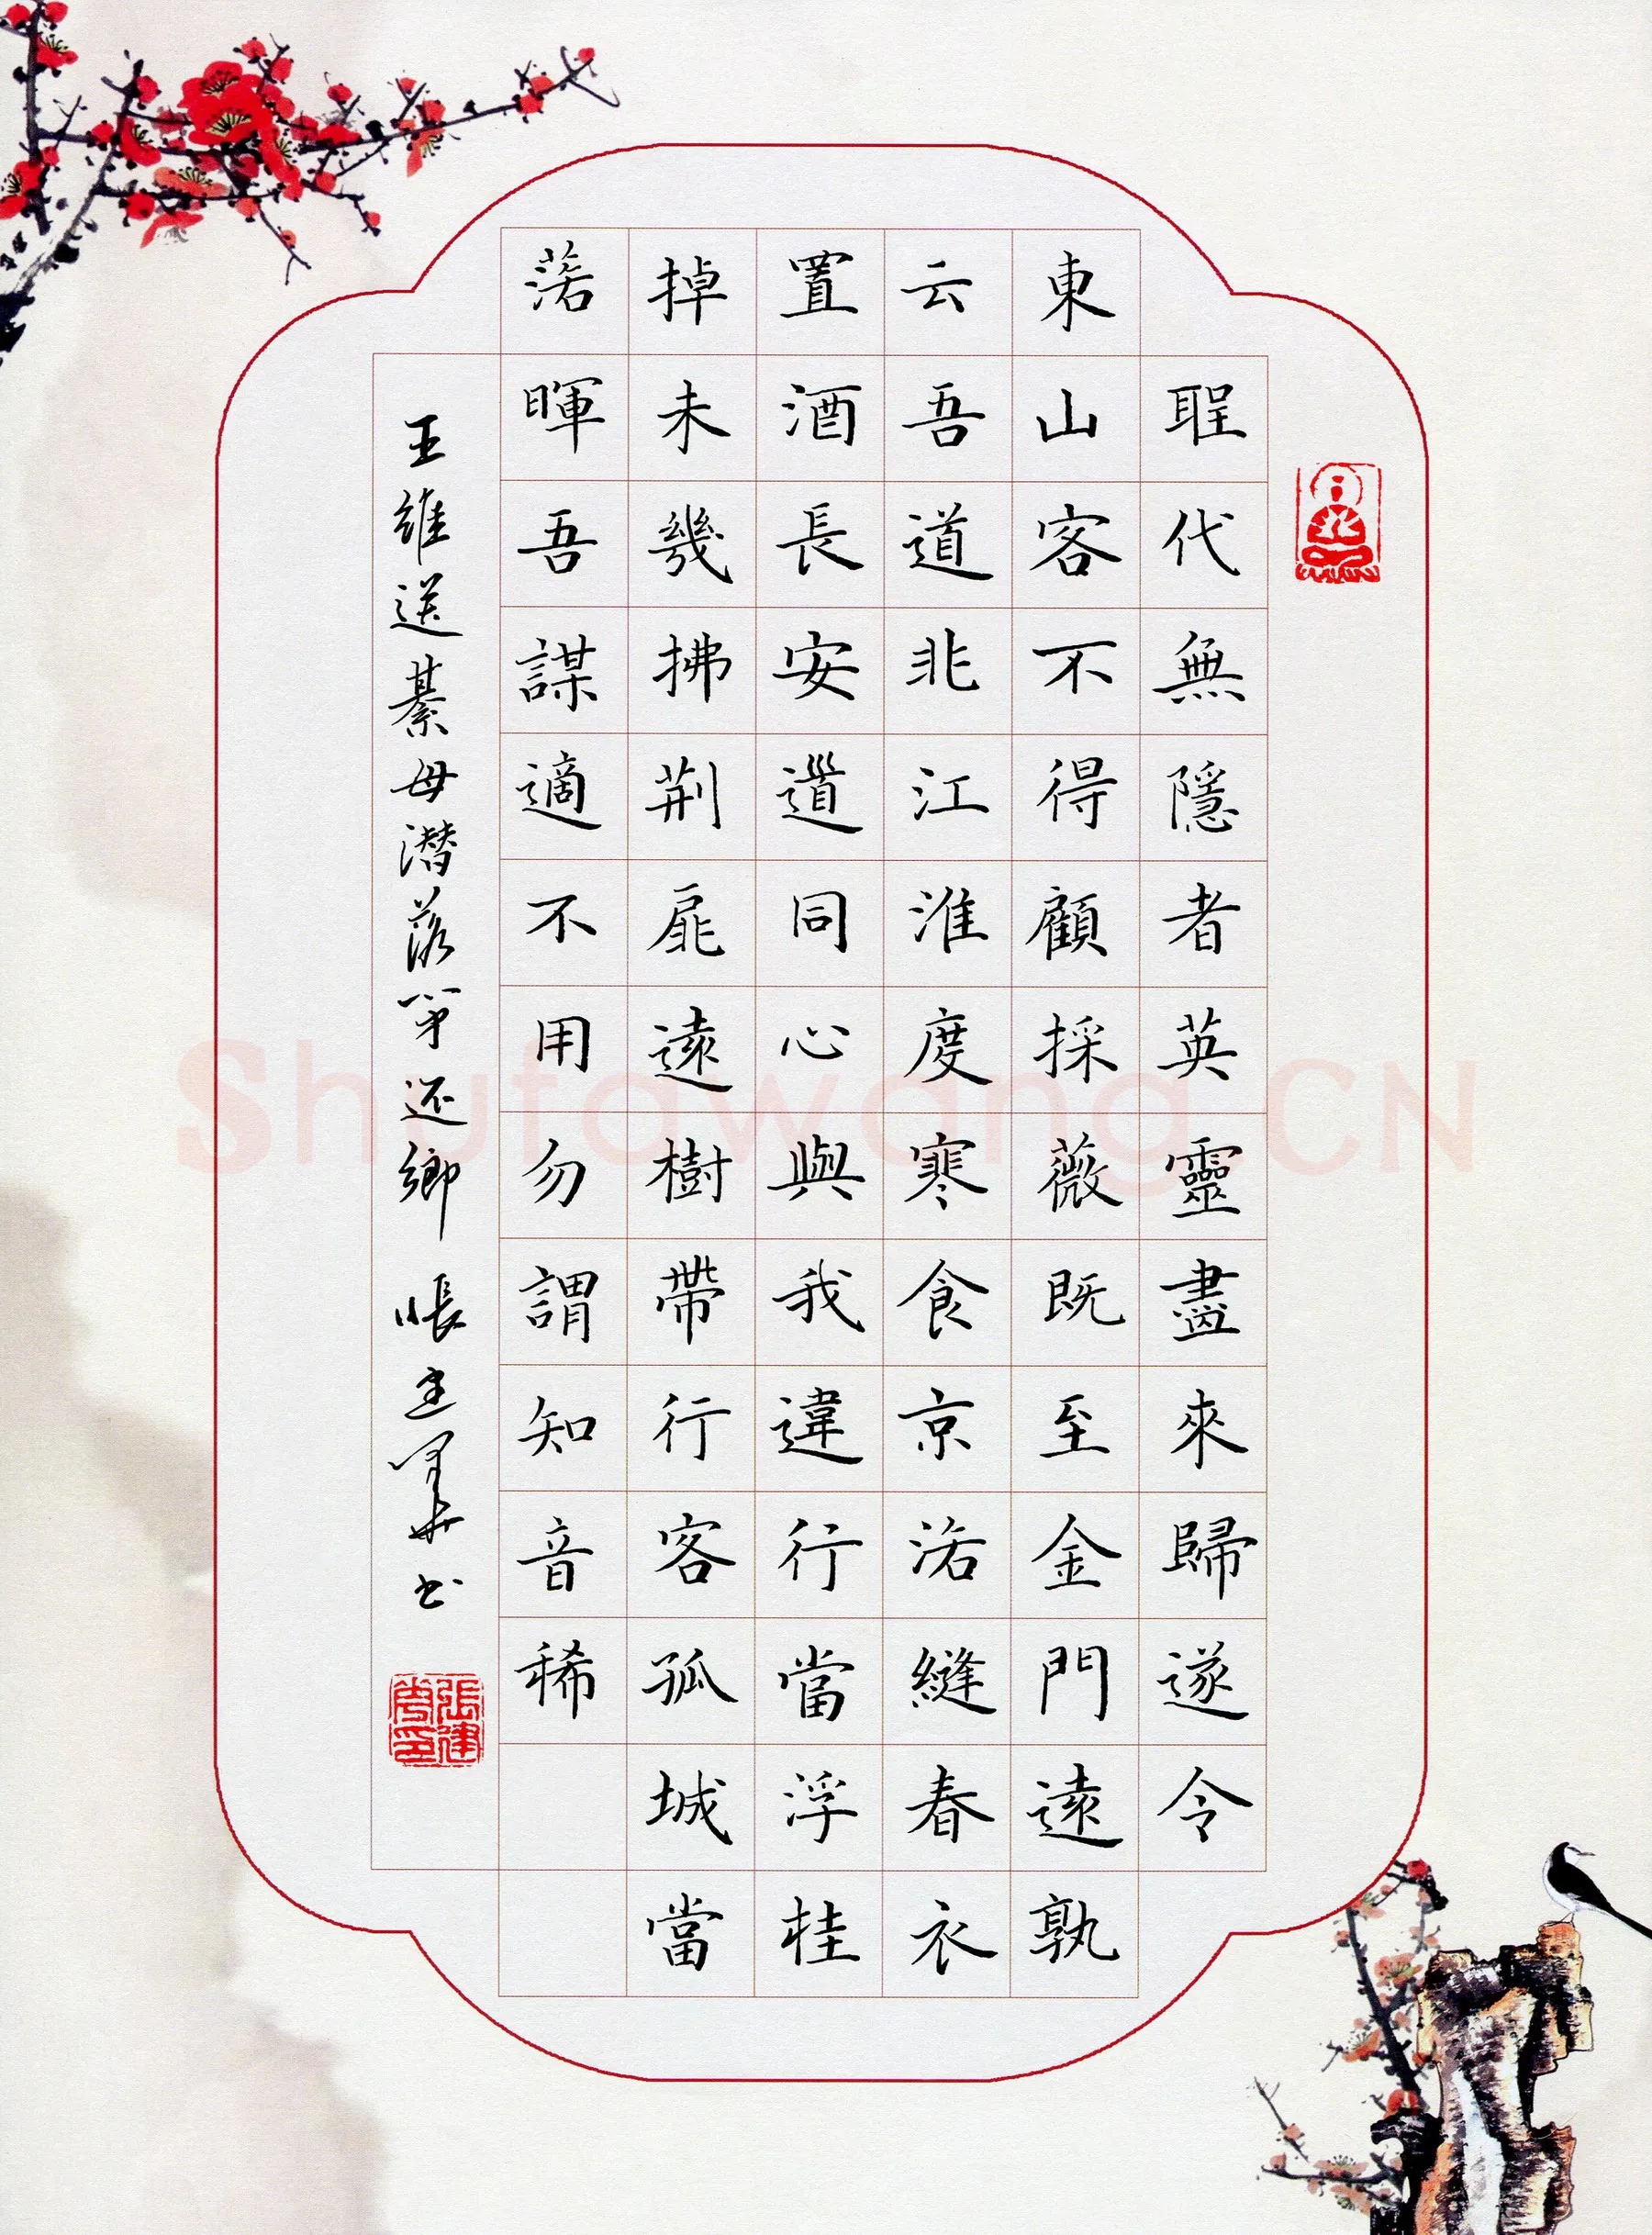 聖代無隱者英靈盡來歸遂令
東山客不得顧採薇既至金門遠孰
云吾道非江淮度寒食京洛縫春衣
置酒長安道同心與我違行當浮桂
掉未幾拂荆扉遠樹帶行客孤城當
落暉吾謀適不用勿謂知音稀
王維送綦母潜落第还鄉 張建书
Shufawang.CN